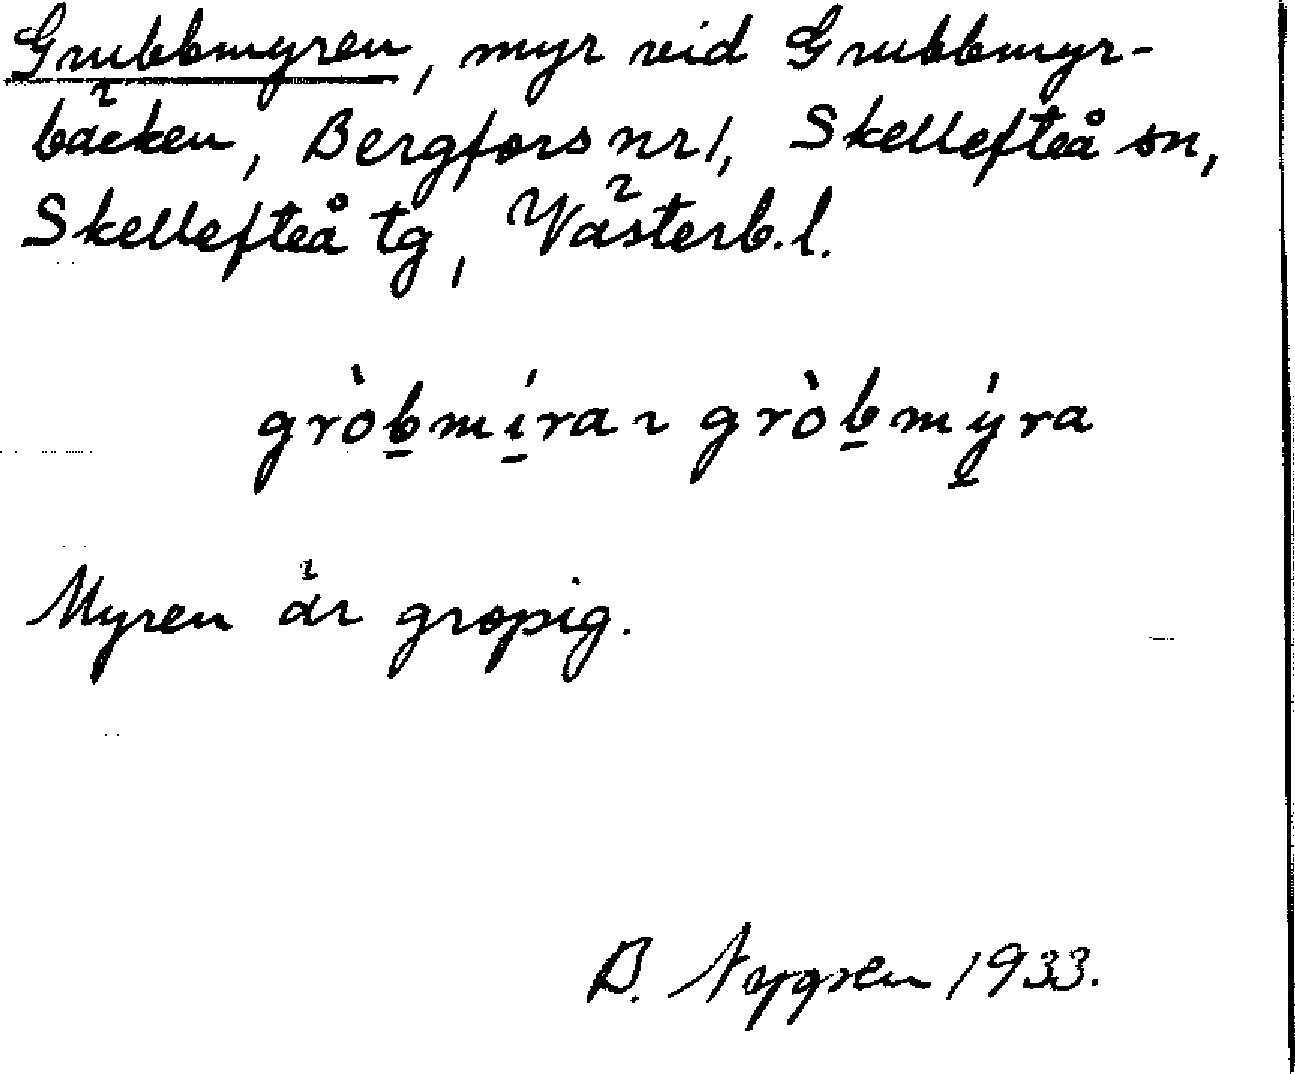 Grubbmyren, myr vid Grubbmyr-
bäcken, Bergfors nr 1, Skellefteå sn,
Skellefteå tg, Västerb. l.
gròb̲mí̲ra ~ gròb̲mý̲ra
Myren är gropig.
B. Nygren 1933.